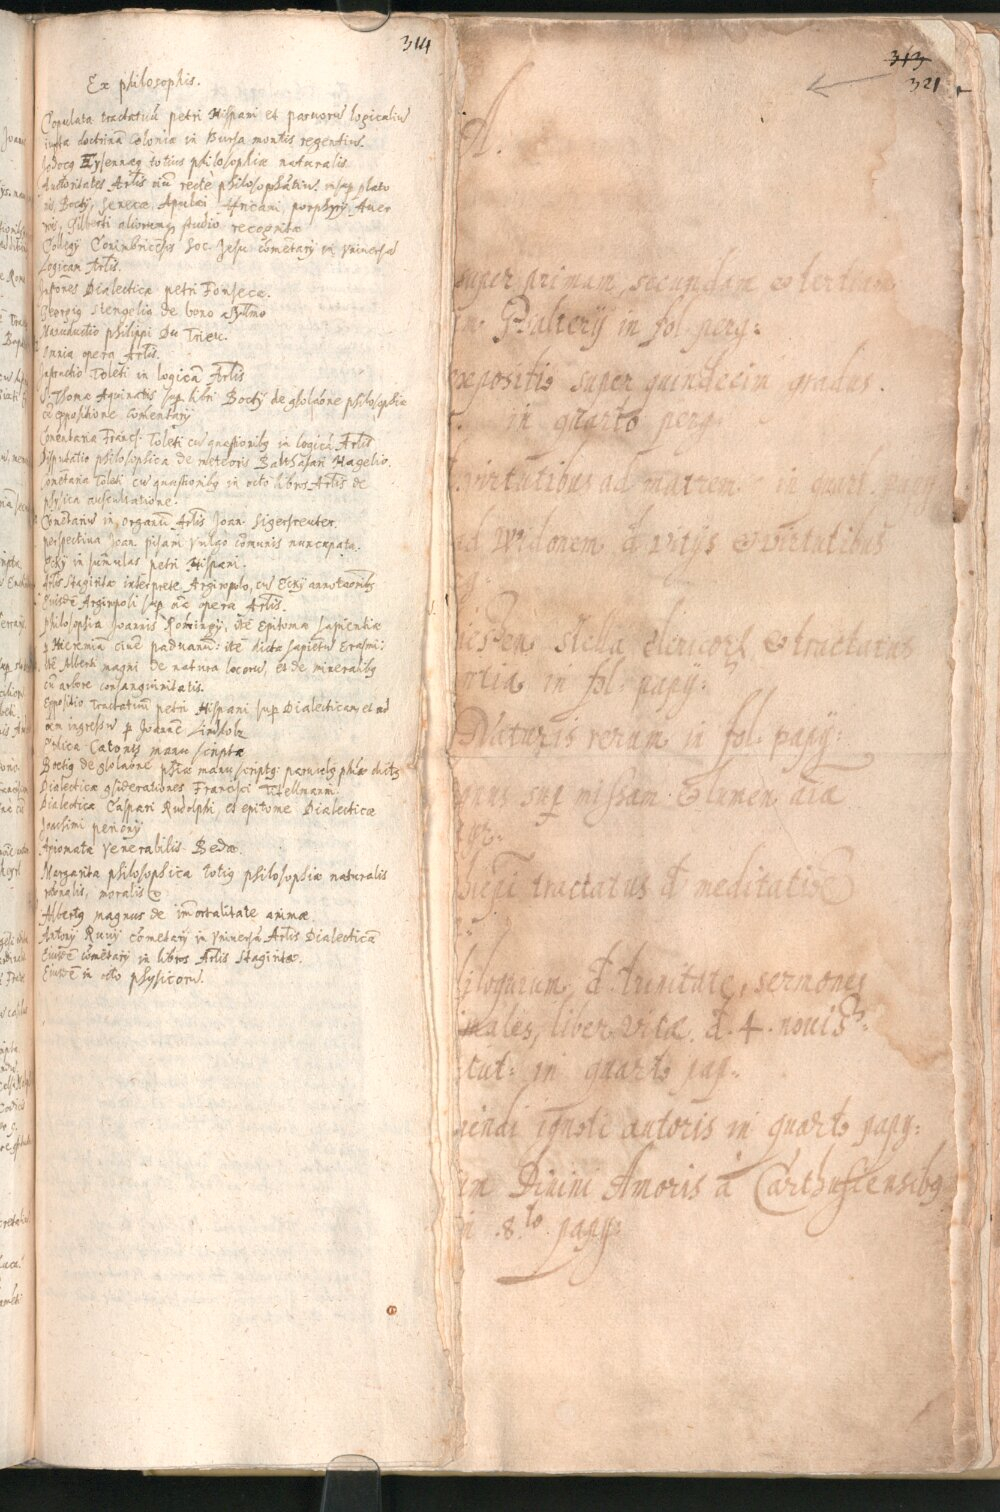 314
Ex philosophis.
Copulata tractatuū petri Hispani et paruorū logicaliū
iuxta doctrinā Coloniæ in Bursa montis regentiū.
Jodocq Eysennaq totius philosophiæ naturalis.
Auctoritates Artis oīū rectè philosophātiū. insup plato
nis, Boetÿ, Senecæ, Apulei Africani, porphyrÿ, Auer
rois, Gilberti aliorumq studio recognitæ
Collegÿ Conimbricēsis Soc. Jesu Comētarÿ in Vniuersā
Logicam Artis.
Dialecticæ petri Fonsecæ.
Georgiq Stengeliq de bono
Manuductio philippi Du Trieu.
Omnia opera Artis.
Toleti in logicā Artis
S. Thomæ Aquinatis sup libri Boetÿ de philosophiæ
cū expositione comentarÿ
Cōmentaria Francs: Toleti cū quæstionibq in logicā Artis
Disputatio philosophica de meteoris Balthasari Hagelio.
Comētaria Toleti cū quæstionibq in octo libros Artis de
physica auscultatione.
Comētariū in organū Artis Joan. Sigersreuter.
perspectiua Joan pisani vulgo cōmunis nuncupata.
Eckÿ in sūmulas petri Hispani.
Artis Stagiritæ interprete Argiropolo, cū Eckÿ annotaōnibq
Eiusdē Argiropoli sup oīa opera Artis.
philosophia Joannis itē Epitomæ Sapientiæ
Hieremiā ciuē paduanū: itē dicta sapientū Erasmi:
itē Alberti magni de natura locorū, et de mineralibq
cū arbore consanguinitatis.
Expositio tractatuū petri Hispani sup Dialecticam, et ad
eam ingressū p Joannē Lindholz
Ethica Catonis manu scriptæ
Boetiq de manu scriptq: paruulq
Dialecticæ ɔsiderationes Francisci Titellmanni.
Dialectica Caspari Rudolphi et epitome Dialecticæ
Joachimi perionÿ
Axiomata Venerabilis Bedæ.
Margarita philosophica totiq philosophiæ naturalis
rationalis, moralis &
Albertq magnus de imortalitate animæ.
Antonÿ Ruuÿ cōmetarÿ in vniuersā Artis Dialecticā
Eiusdē cōmētarÿ in libros Artis Stagiritæ.
Eiusdē in octo physicorū.
313
321
A.
super primam, secundam & tertiam
Psalterÿ in fol. perg:
expositio super quindecim gradus.
in quarto perg.
virtutibus ad matrem in quart. papÿ
ad Widorem đ vitÿs & virtutibus
stella clericorū & tractatus
in fol. papÿ:
Naturis rerum in fol. papÿ:
sup missam & lumen aīæ
tractatus đ meditatiōe
đ trinitate, sermones
liber vitæ đ. 4. nouis:
in quarto pap.
ignoti autoris in quarto papÿ:
Diuini Amoris à Carthusiensibq
in .8.to papÿ: